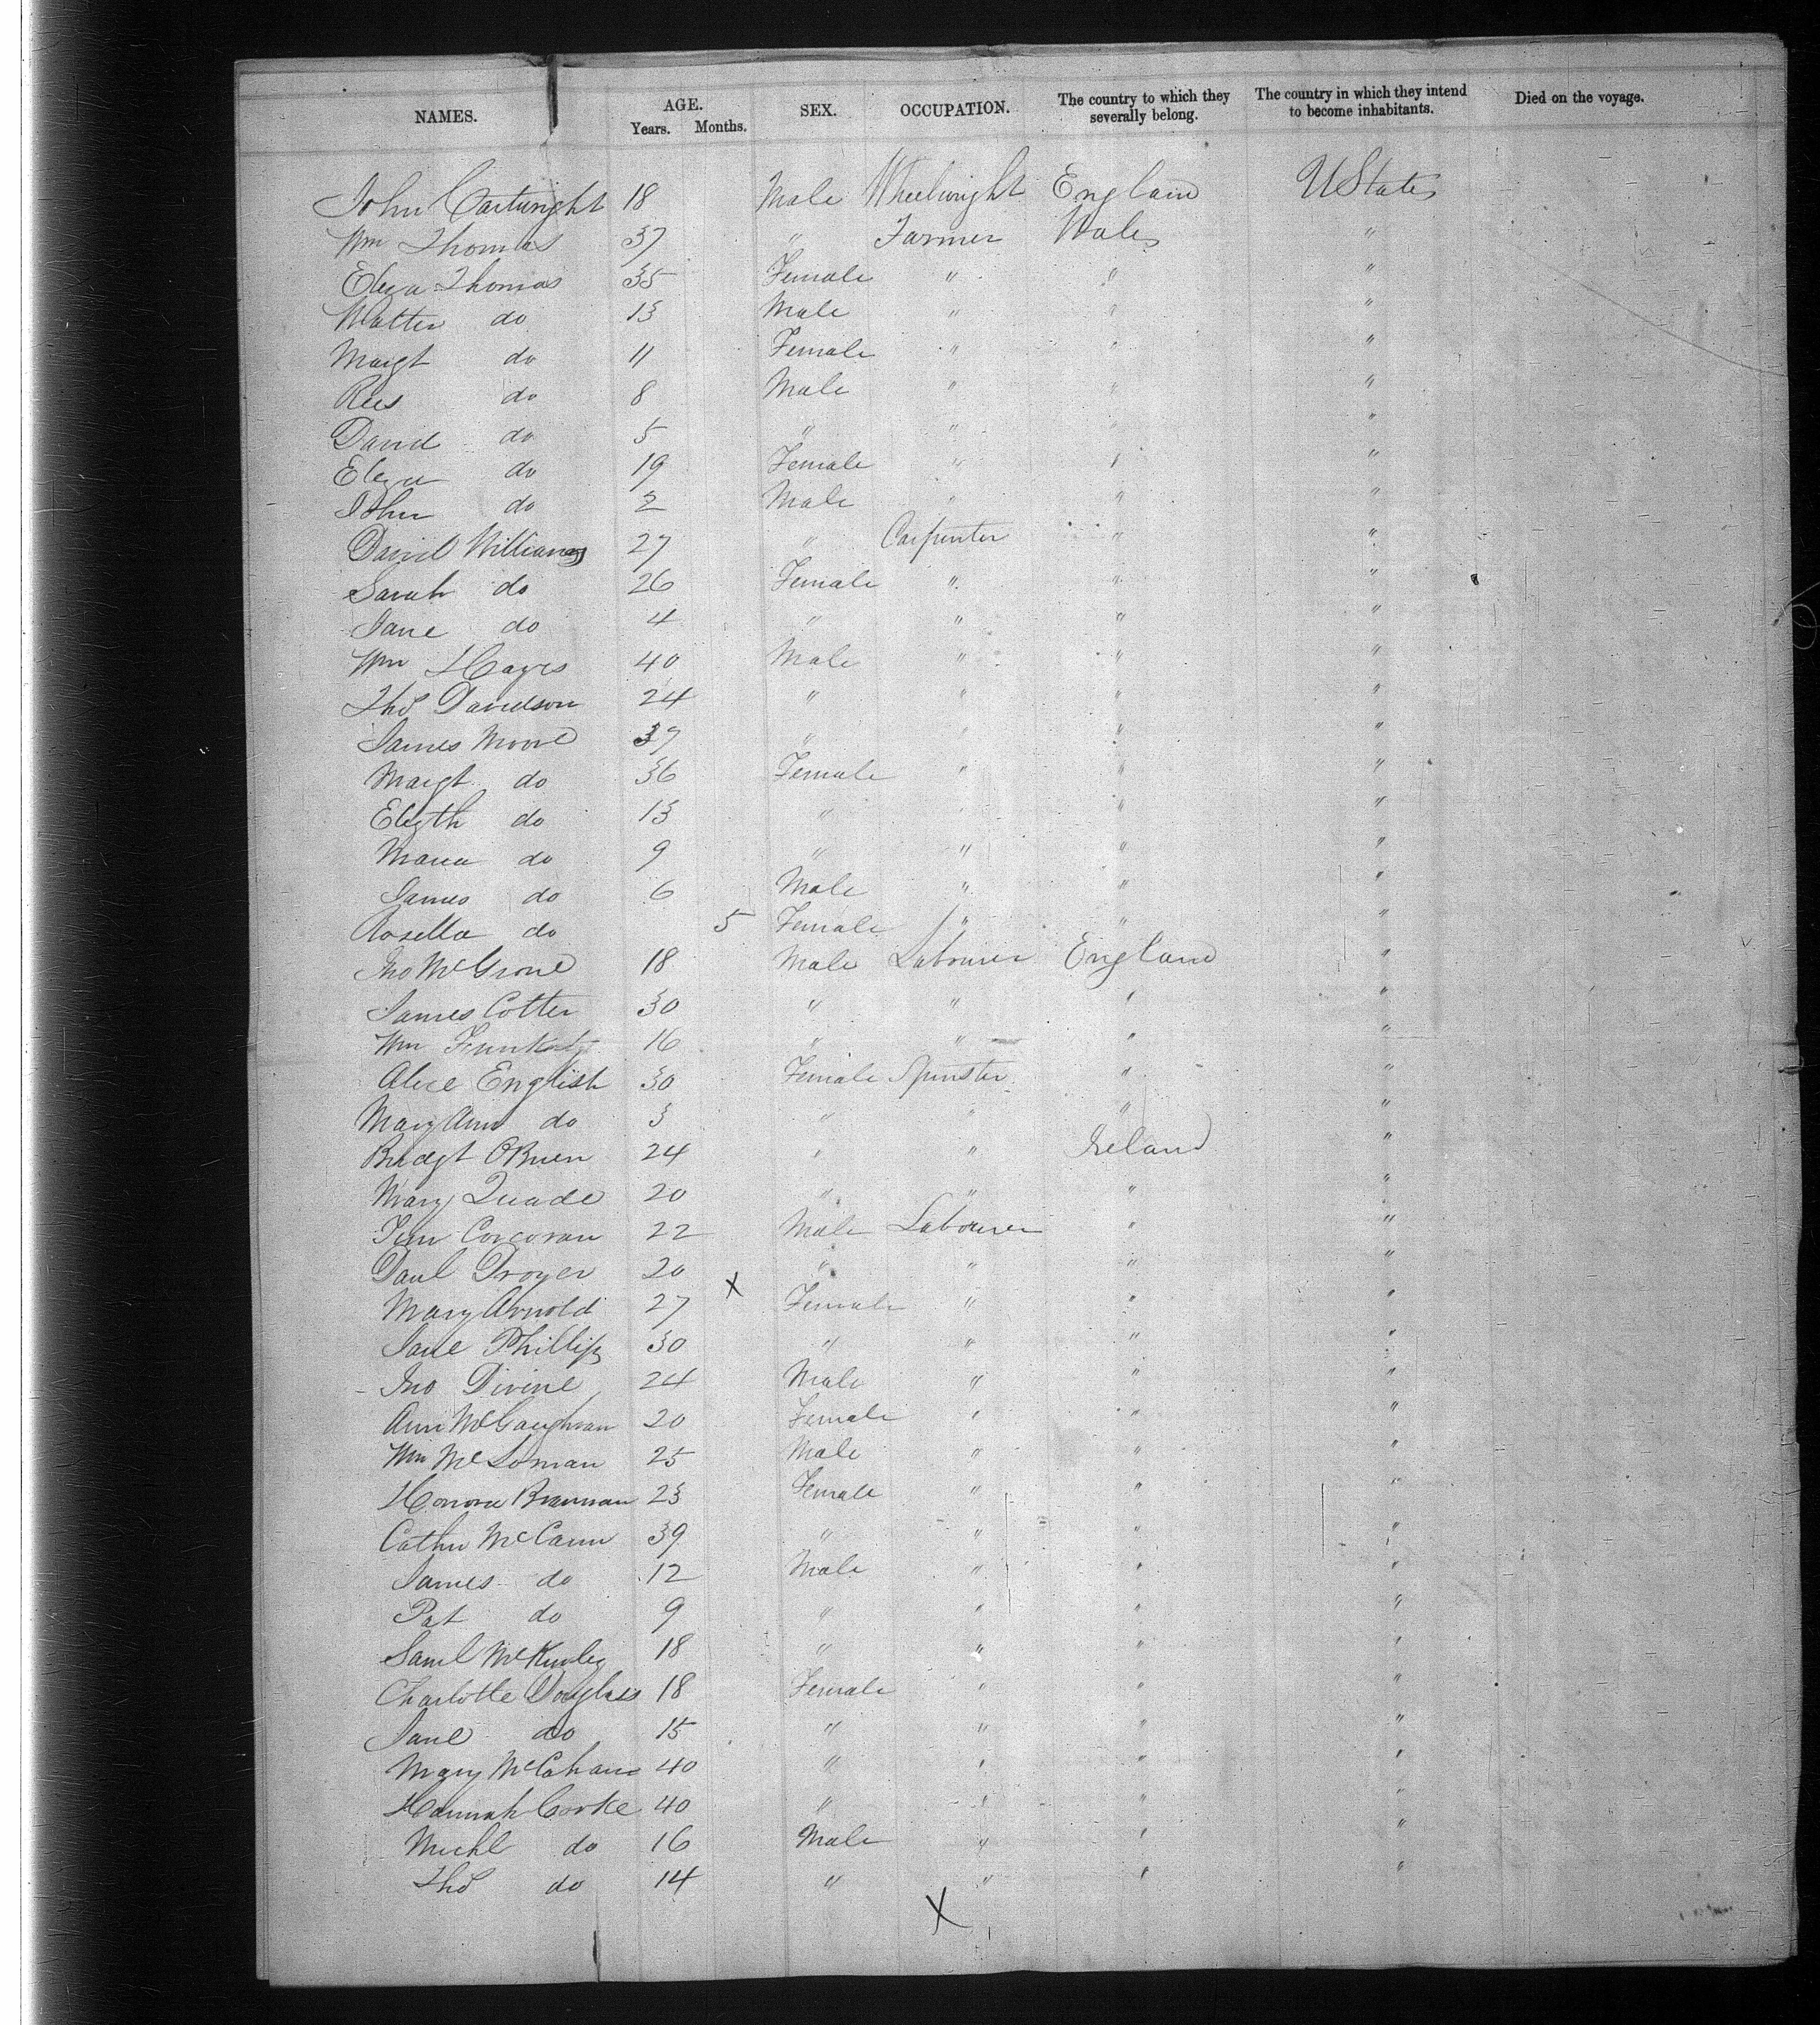 NAMES. AGE. Years. Months. SEX. OCCUPATION. The country to which they severally belong. The country in which they intend to become inhabitants. Died on the voyage.
John Cartwright 18 Male Wheelwright England U States
Wm Thomas 37 " Farmer Wales "
Eliza Thomas 35 Female " " "
Walter do 13 Male " " "
Margt do 11 Female " " "
Rees do 8 Male " " "
David do 5 " " " "
Eliza do 19 Female " " "
John do 2 Male " " "
David Williams 27 " Carpenter " "
Sarah do 26 Female " " "
Jane do 4 " " " "
Wm Hayes 40 Male " " "
Thos Davidson 24 " " " "
James Moore 37 " " " "
Margt do 36 Female " " "
Elizth do 13 " " "
Maria do 9 " " " "
James do 6 Male " " "
Rosella do 5 Female " " "
Jno McGrone 18 Male Labourer England "
James Cotter 30 " " " "
Wm 16 " " " "
Alice English 30 Female Spinster " "
Mary Ann do 3 " " " "
Bridgt OBrien 24 " " Ireland "
Mary Quade 20 " " " "
Tim Corcoran 22 Male Labourer " "
Danl Droyer 20 " " " "
Mary Arnold 27 X Female " " "
Jane Phillips 30 " " " "
Jno Divine 24 Male " " "
Ann McGaughran 20 Female " " "
Wm McLornan 25 Male " " "
Honora Brannan 23 Female " " "
Cathn McCann 39 " " " "
James do 12 Male " " "
Pat do 9 " " " "
Saml McKinley 18 " " " "
Charlotte Douglass 18 Female " " "
Jane do 15 " " " "
Mary McCahan 40 " " " "
Hannah Corke 40 " " " "
Michl do 16 Male " " "
Thos do 14 " " " "
X